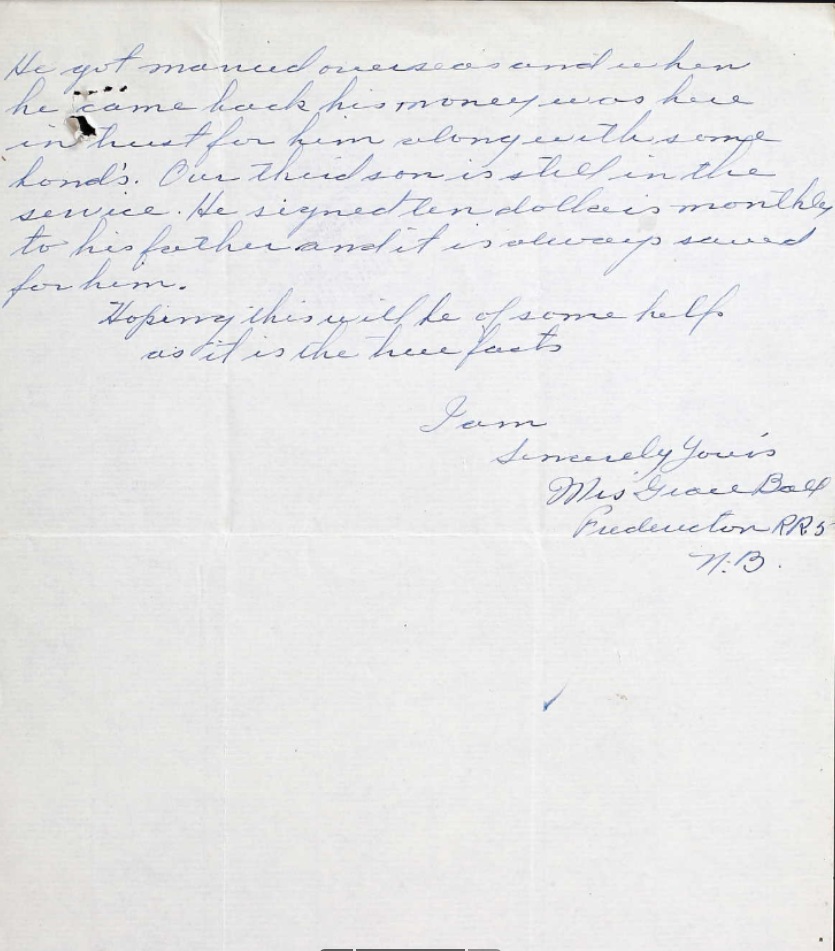 He got married overseas and when
he came back his money was here
in trust for him along with some
bond's. Our third son is still in the
service. He signed ten dollars monthly
to his father and it is always saved
for him.
Hoping this will be of some help
as it is the true facts
I am
Sincerely Your's
Mrs Grace Ball
Fredericton RR 5
N.B.